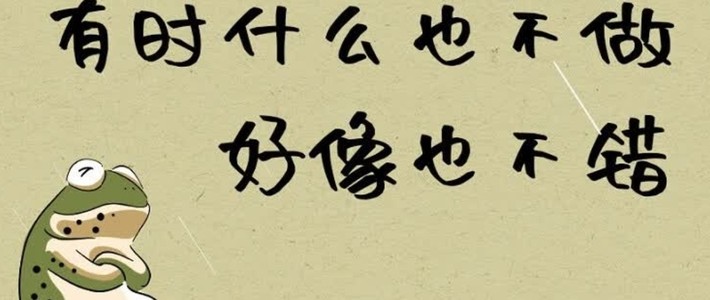 有时什么也不做
好像也不错